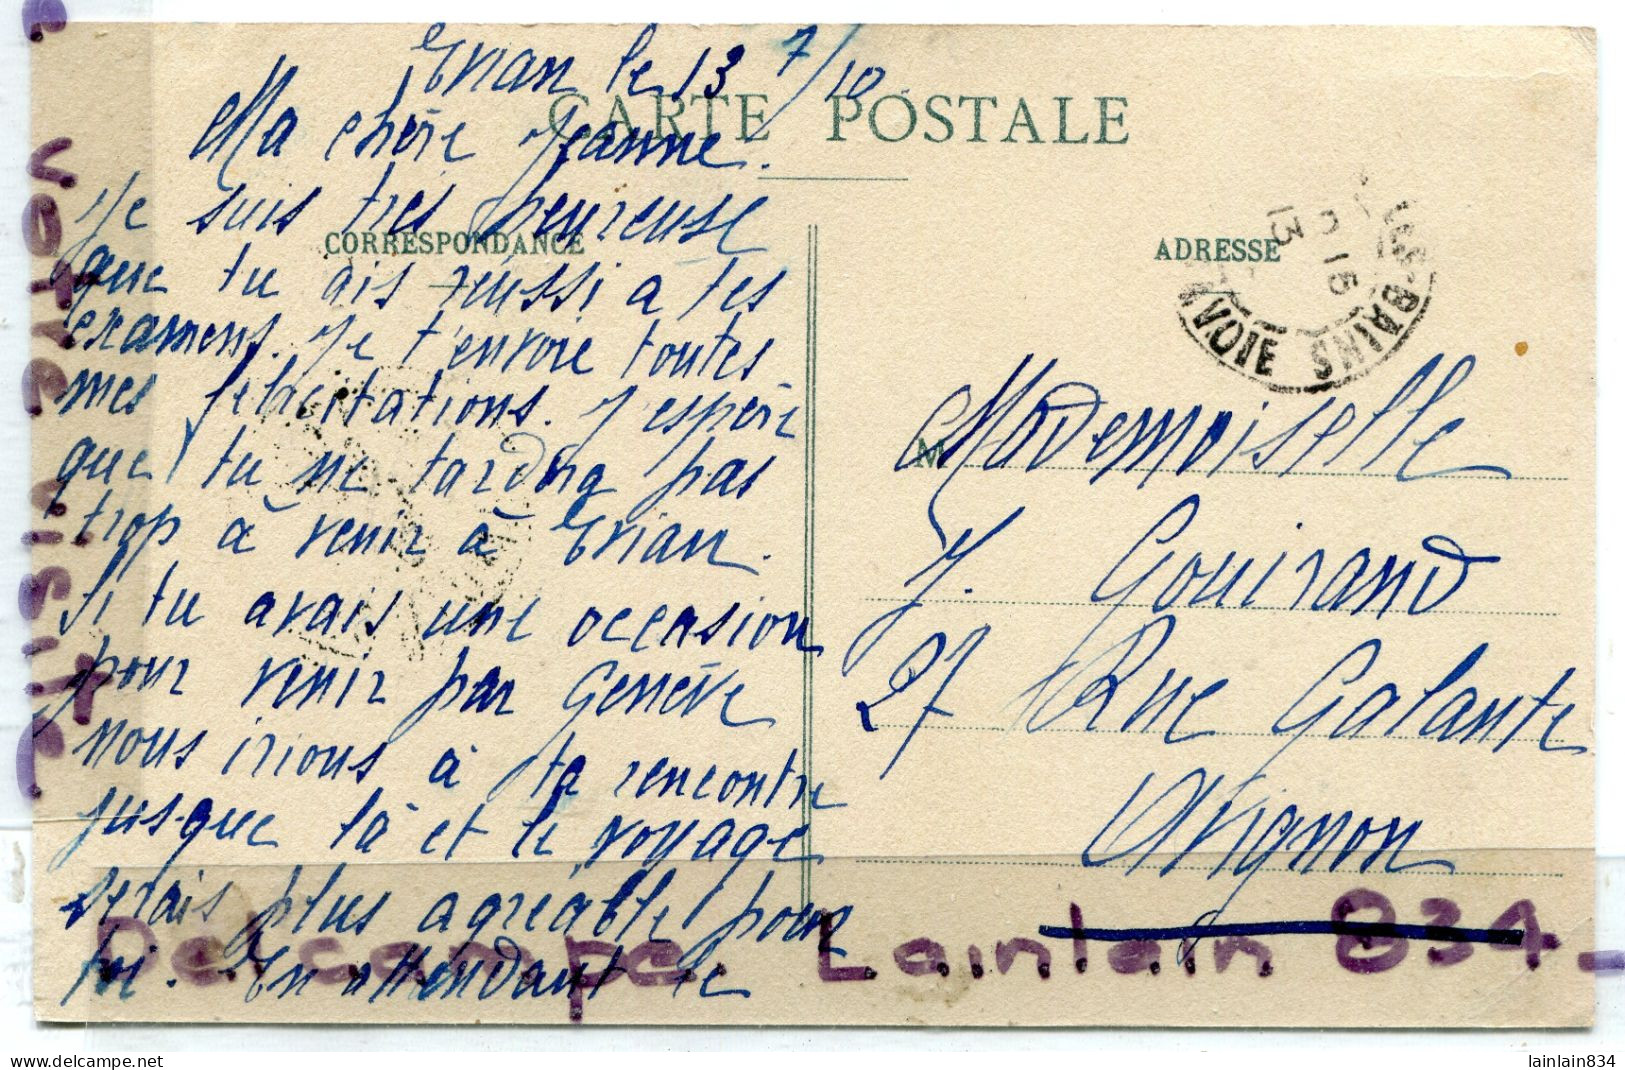 Evian le 13 7/10
CARTE POSTALE
Ma chère Jeanne.
Je suis très heureuse
CORRESPONDANCE
que tu ais réussi a tes
examens. Je t'envoie toutes
mes félicitations. J'espère
que tu ne tardera pas
trop à venir à Evian.
Si tu avais une occasion
pour venir par Genève
nous irions à ta rencontre
jusque là et le voyage
serais plus agréable pour
toi. En attendant le
ADRESSE
13
15
LES-BAINS
VOIE
M Mademoiselle
J. Gouirand
27 Rue Galante
Avignon
Delcampe. Lainlain 834
votre visite
www.delcampe.net
lainlain834